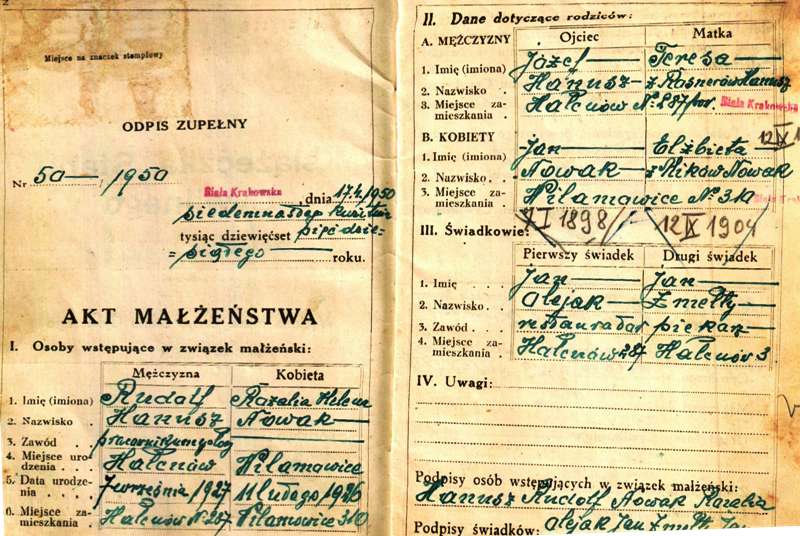 2
Miejsce na znaczek stemplowy
ODPIS ZUPEŁNY
Nr 50 — /1950
Biała Krakowska, dnia 17.4.1950
siedemnastego kwietnia
tysiąc dziewięćset pięćdzie-
= siątego roku.
AKT MAŁŻEŃSTWA
I. Osoby wstępujące w związek małżeński:
Mężczyzna Kobieta
1. Imię (imiona) Rudolf Rozalia Helena
2. Nazwisko . Hanusz Nowak
3. Zawód . . pracownik umysłowy
4. Miejsce uro-
dzenia . . . Hałcnów Wilamowice
5. Data urodze-
nia . . . . 7 września 1927 11 lutego 1926
6. Miejsce za-
mieszkania . Hałcnów Nr 287 Wilamowice 310
II. Dane dotyczące rodziców:
A. MĘŻCZYZNY Ojciec Matka
1. Imię (imiona) Józef Teresa
2. Nazwisko . Hanusz z Rosnerów Hanusz
3. Miejsce za-
mieszkania . Hałcnów Nr 287 pow. Biała Krakowska
B. KOBIETY
1. Imię (imiona) Jan Elżbieta 12 X
2. Nazwisko . . Nowak z Mików Nowak
3. Miejsce za-
mieszkania . Wilamowice Nr 310
I 1898 12 IX 1904
III. Świadkowie:
Pierwszy świadek Drugi świadek
1. Imię . . . . Jan Jan
2. Nazwisko . . Olejak Zmełty
3. Zawód . . . restaurator piekarz
4. Miejsce za-
mieszkania . Hałcnów 287 Hałcnów 3
IV. Uwagi:
Podpisy osób wstępujących w związek małżeński:
Hanusz Rudolf Nowak Rozalia
Podpisy świadków: Olejak Jan Zmełty Jan